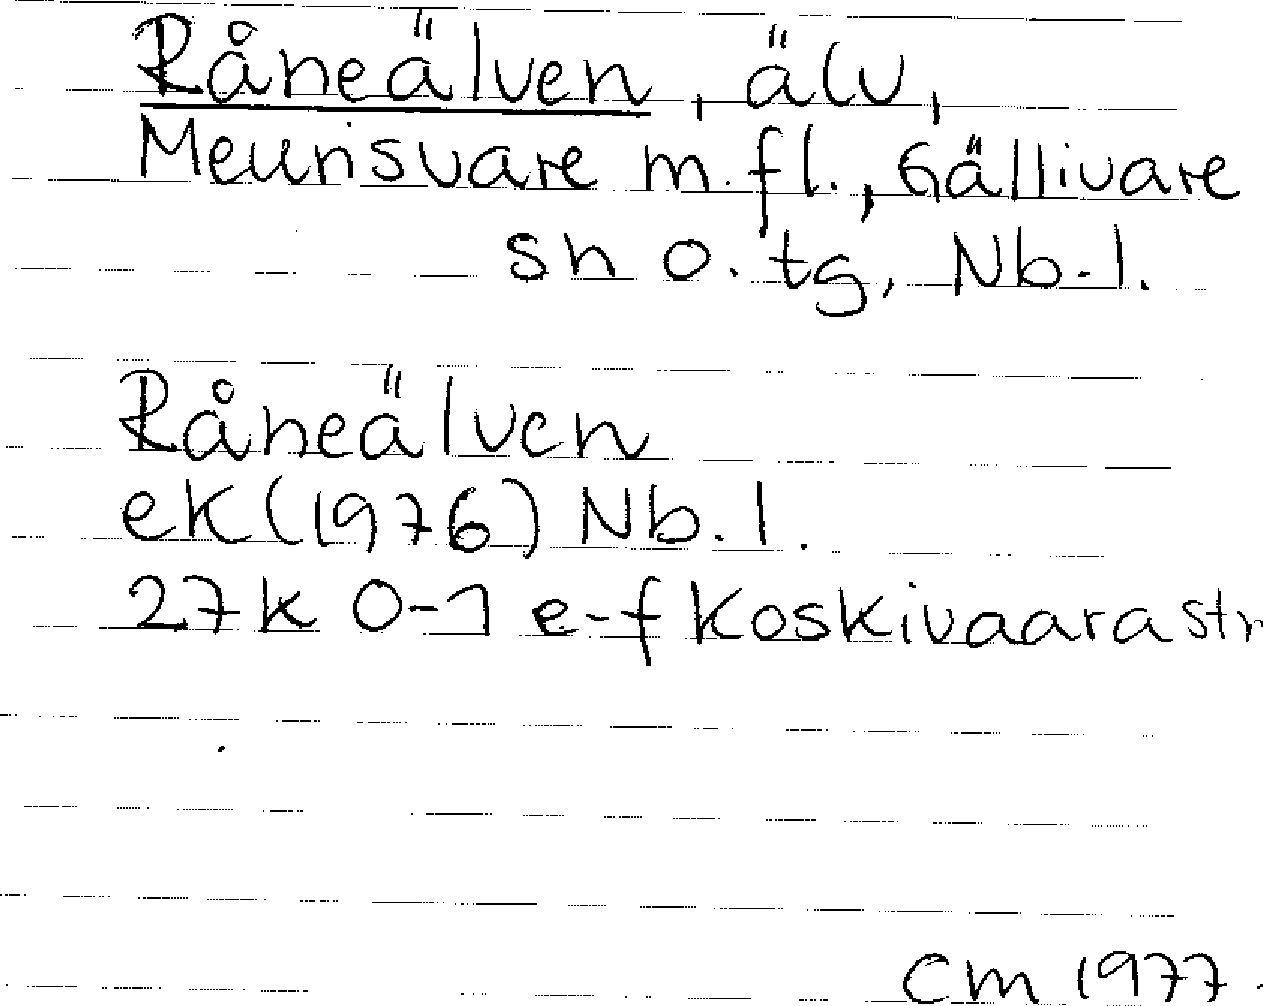 Råneälven, älv,
Meunisvare m.fl., Gällivare
sn o. tg, Nb.l.
Råneälven
ek (1976) Nb.l.
27k 0-1 e-f Koskivaara str
CM 1977.